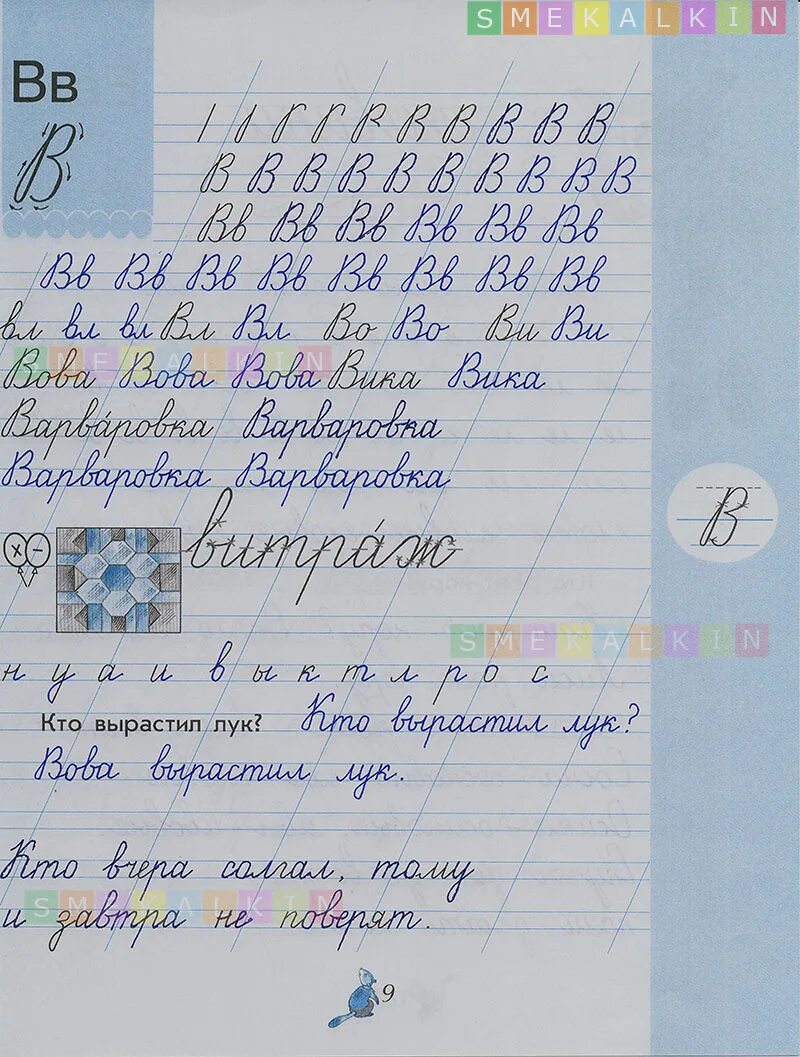 SMEKALKIN
Вв
В
В В В В
В В В В В В В В В В
Вв Вв Вв Вв Вв Вв
Вв Вв Вв Вв Вв Вв Вв Вв
вл вл вл Вл Вл Во Во Ви Ви
SMEKALKIN
Вова Вова Вова Вика Вика
Варва́ровка Варваровка
Варваровка Варваровка
В
× − витра́ж
SMEKALKIN
н у а и в ы к т л р о с
Кто вырастил лук? Кто вырастил лук?
Вова вырастил лук.
Кто вчера солгал, тому
SMEKALKIN
и завтра не поверят.
9